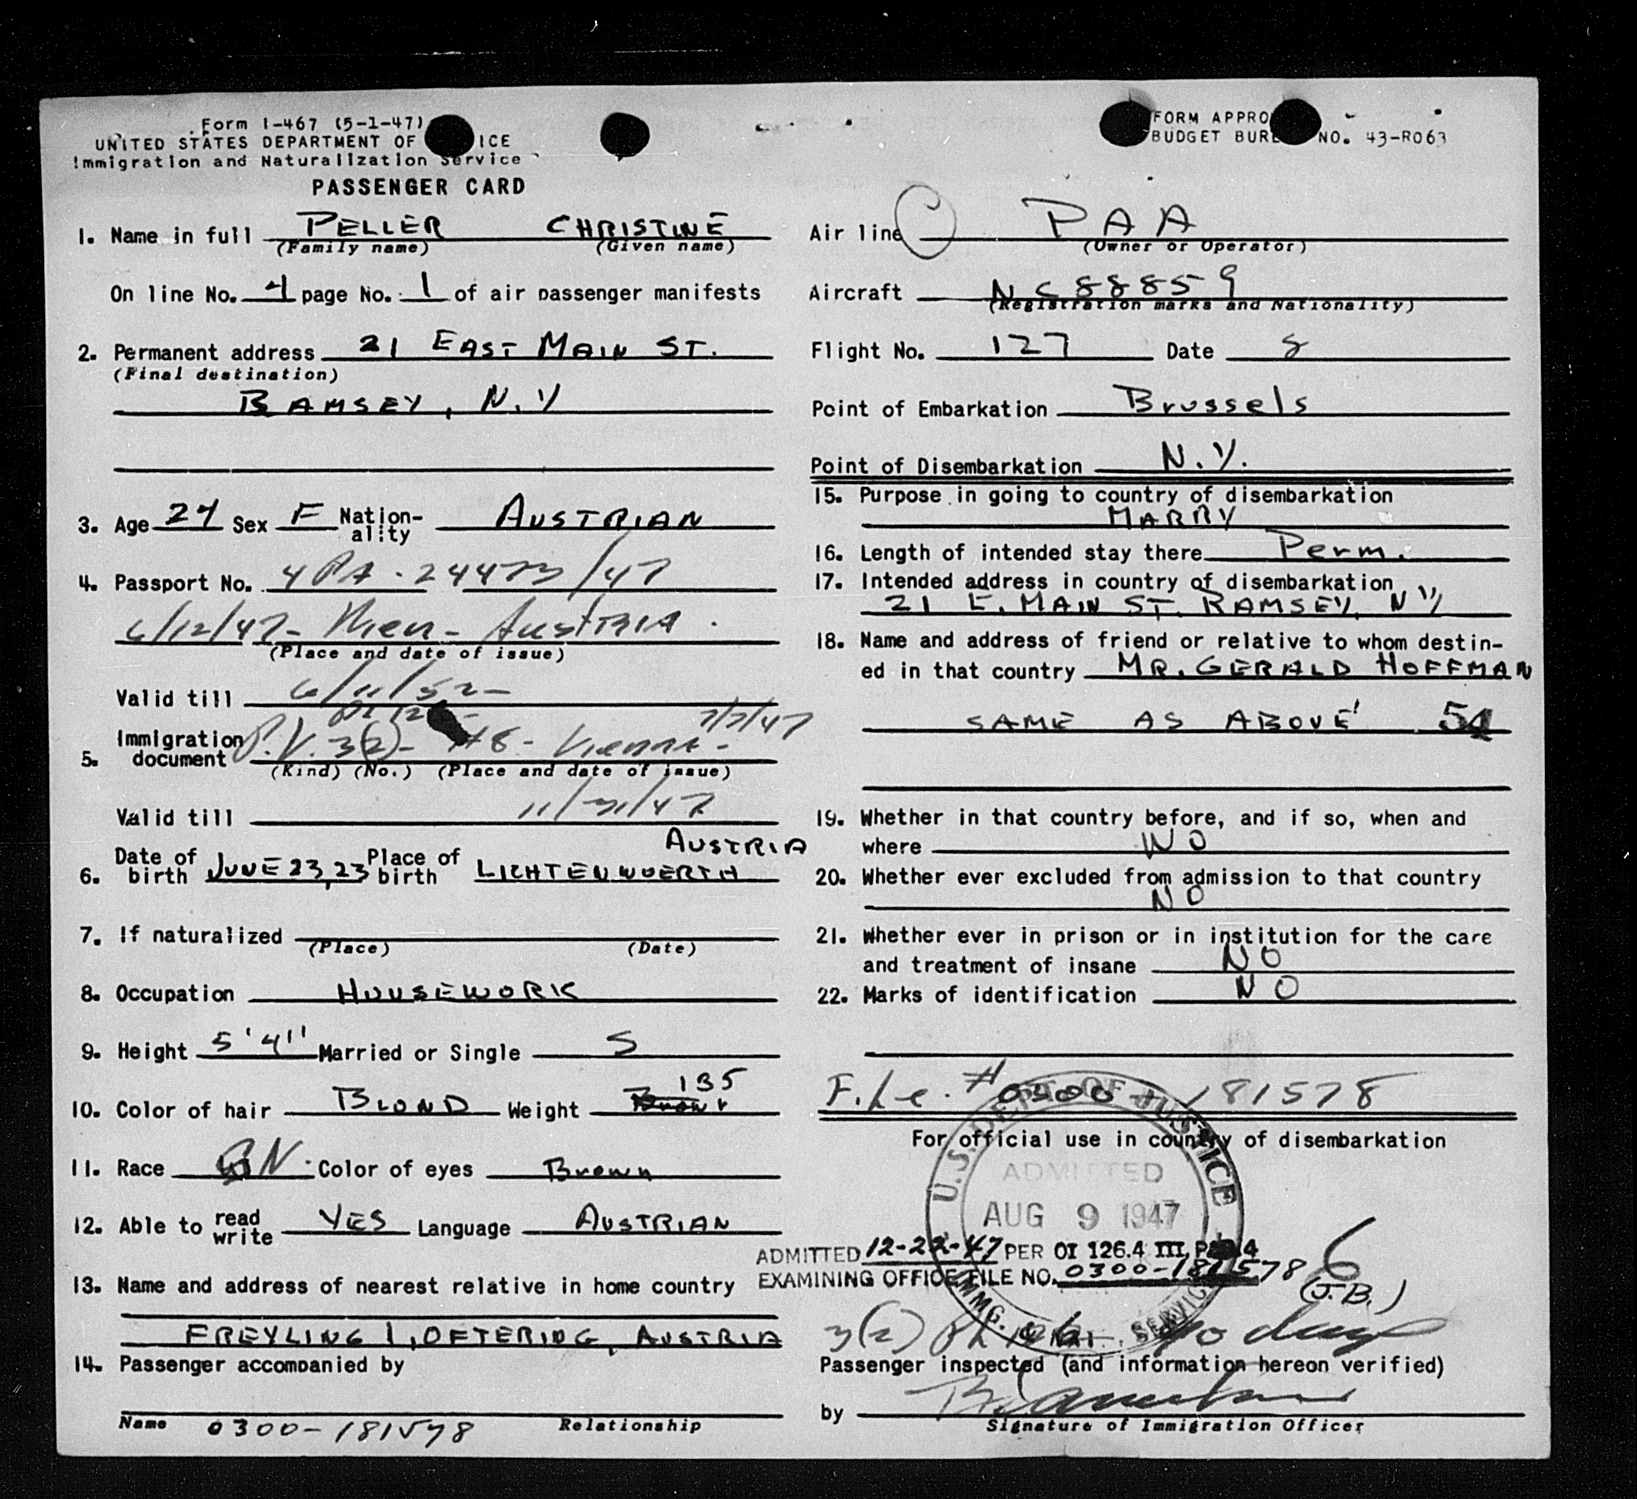 Form I-467 (5-1-47)
UNITED STATES DEPARTMENT OF ICE
Immigration and Naturalization Service
PASSENGER CARD
1. Name in full PELLER CHRISTINE
(Family name) (Given name)
On line No. 4 page No. 1 of air passenger manifests
2. Permanent address 21 EAST MAIN ST.
(Final destination)
RAMSEY, N.Y
3. Age 24 Sex F Nation-ality AUSTRIAN
4. Passport No. /47
6/12/47 - Wien - AUSTRIA.
(Place and date of issue)
Valid till 6/11/52
5. Immigration document P.V. 3(2) - Vienna - 7/7/47
(Kind) (No.) (Place and date of issue)
Valid till
AUSTRIA
6. Date of birth JUNE 23, 23 Place of birth LICHTENWOERTH
7. If naturalized
(Place) (Date)
8. Occupation HOUSEWORK
9. Height 5'4" Married or Single S
10. Color of hair BLOND Weight 135
11. Race Color of eyes Brown
12. Able to read write YES Language AUSTRIAN
13. Name and address of nearest relative in home country
FREYLING 1, OFTERING, AUSTRIA
14. Passenger accompanied by
Name 0300-181578 Relationship
FORM APPRO
BUDGET BURE NO. 43-R063
Air line PAA
(Owner or Operator)
Aircraft NC88859
(Registration marks and Nationality)
Flight No. 127 Date 8
Point of Embarkation Brussels
Point of Disembarkation N.Y.
15. Purpose in going to country of disembarkation
MARRY
16. Length of intended stay there Perm.
17. Intended address in country of disembarkation
21 E. MAIN ST. RAMSEY, NY
18. Name and address of friend or relative to whom destin-
ed in that country MR. GERALD HOFFMAN
SAME AS ABOVE 54
19. Whether in that country before, and if so, when and
where NO
20. Whether ever excluded from admission to that country
NO
21. Whether ever in prison or in institution for the care
and treatment of insane NO
22. Marks of identification NO
File # 0300-181578
For official use in country of disembarkation
U.S. DEPT. OF JUSTICE
ADMITTED
AUG 9 1947
IMMG. & NAT. SERVICE
ADMITTED 12-22-47 PER OI 126.4 III, P
EXAMINING OFFICE FILE NO. 0300-181578
6
(J.B.)
3(2)
Passenger inspected (and information hereon verified)
by
Signature of Immigration Officer